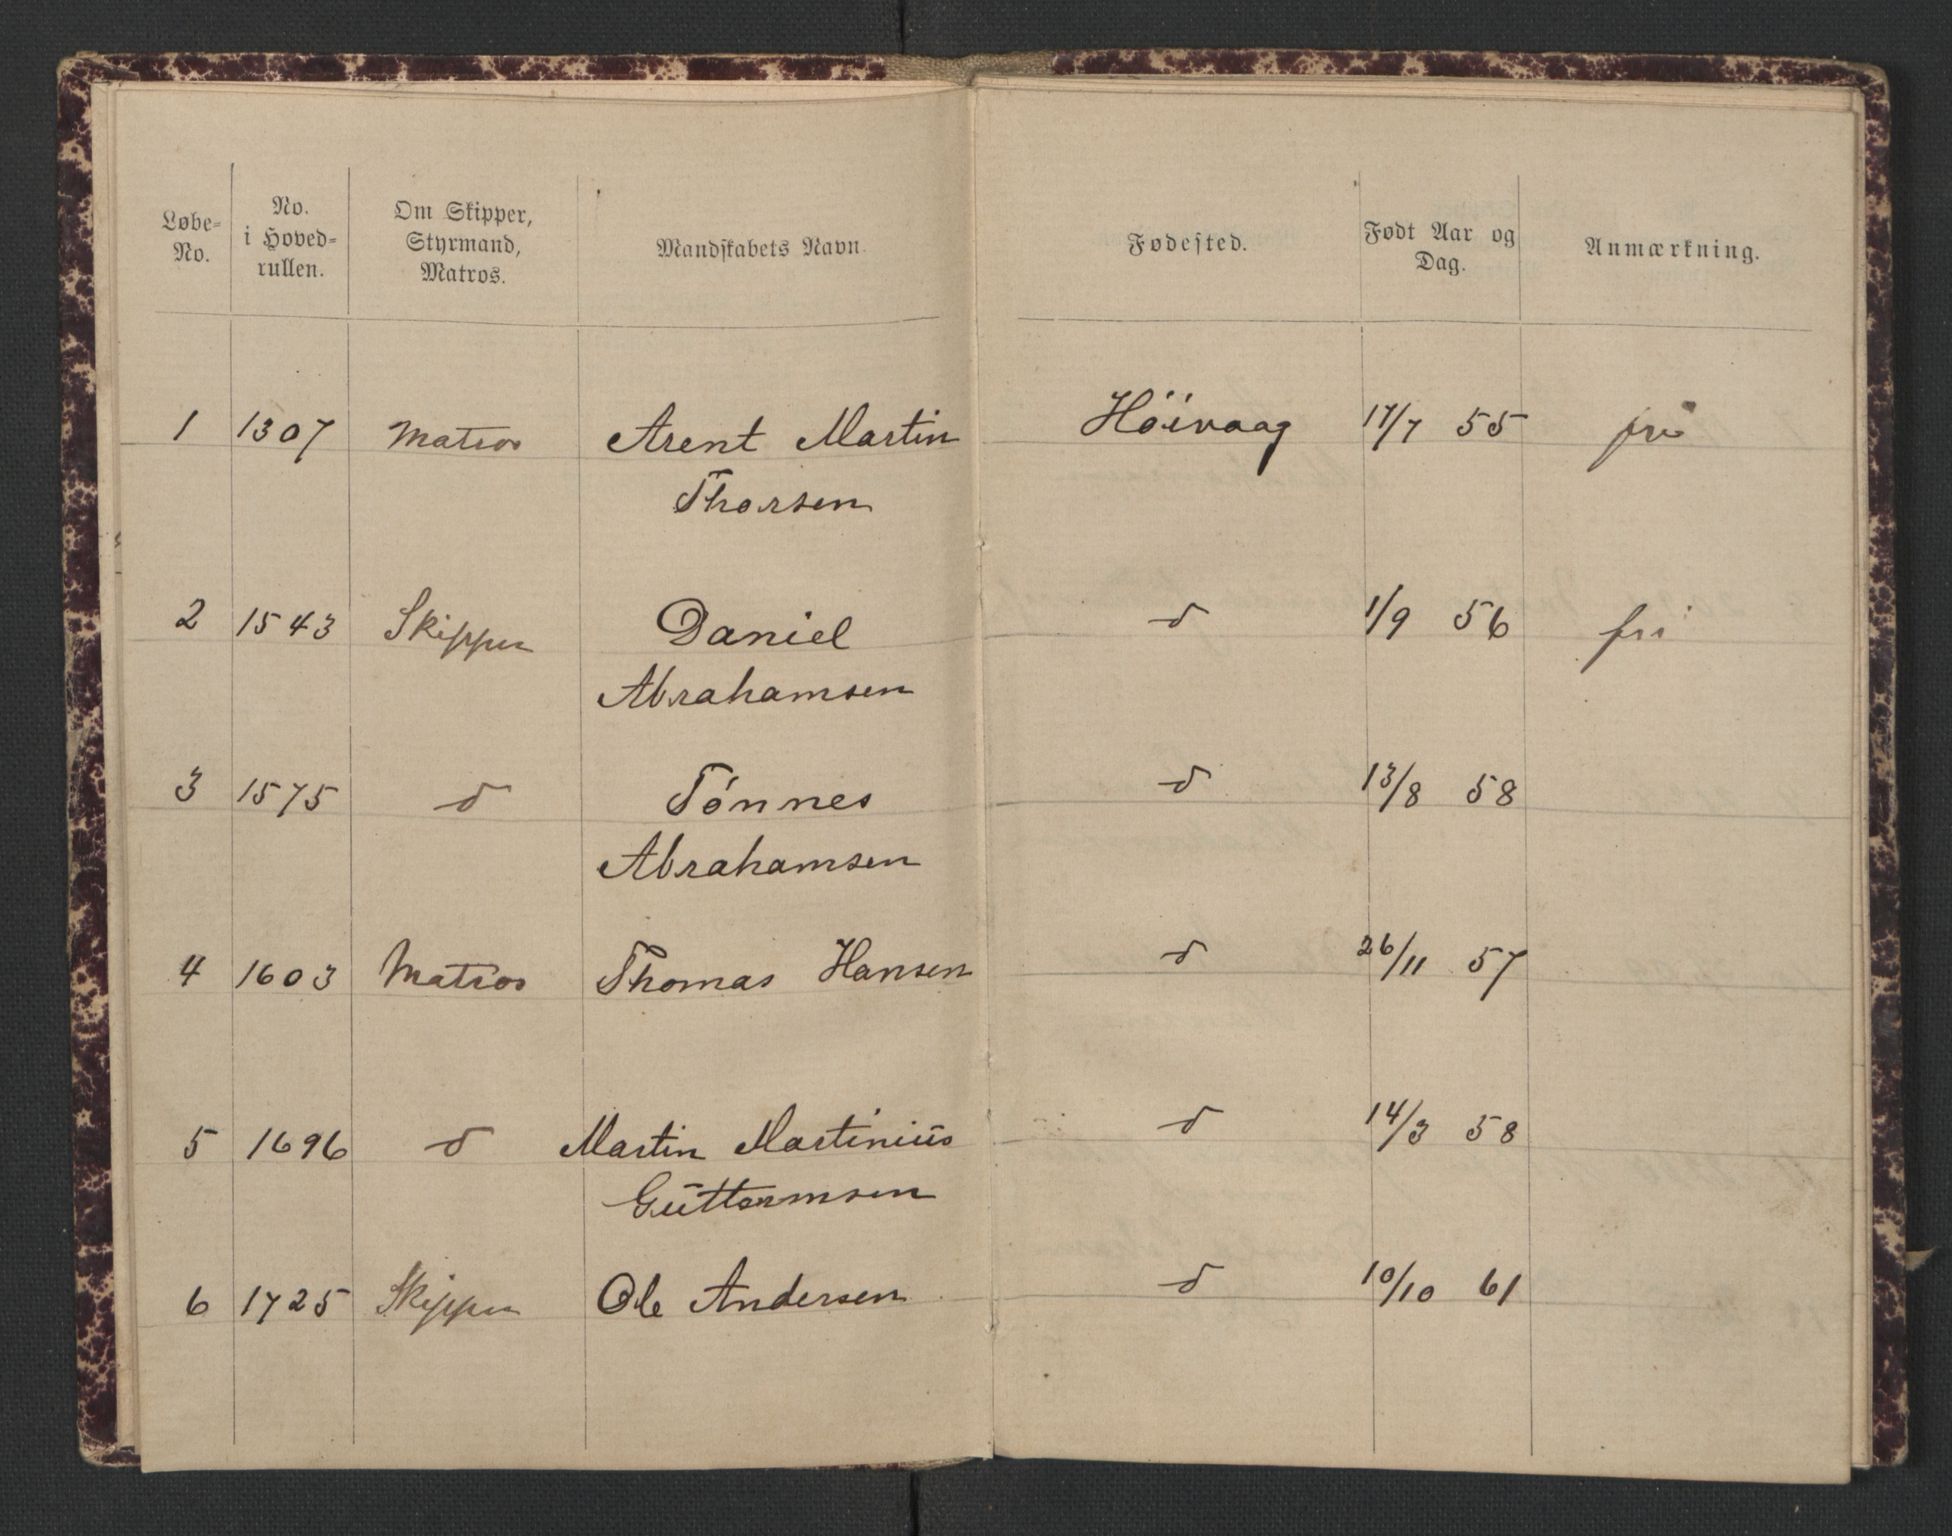 Løbe-No. | No. i Hoved-rullen. | Om Skipper, Styrmand, Matros. | Mandskabets Navn. | Fødested. | Født Aar og Dag. | Anmærkning.
1 | 1307 | Matros | Arent Martin | Höivaag | 17/7 55 | fri
Thorsen
2 | 1543 | Skipper | Daniel | d | 1/9 56 | fri
Abrahamsen
3 | 1575 | d | Tónnes | d | 13/8 58
Abrahamsen
4 | 1603 | Matros | Thomas Hansen | d | 26/11 57
5 | 1696 | d | Martin Martinius | d | 14/3 58
Guttormsen
6 | 1725 | Skipper | Ole Andersen | d | 10/10 61